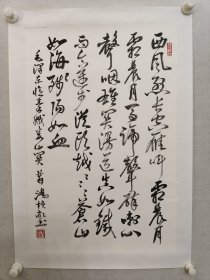 西風烈長空雁叫霜晨月
霜晨月馬蹄聲碎喇叭
聲咽雄關漫道真如鐵
而今迈步從頭越々々々蒼山
如海殘陽如血
毛澤東憶秦娥婁山關